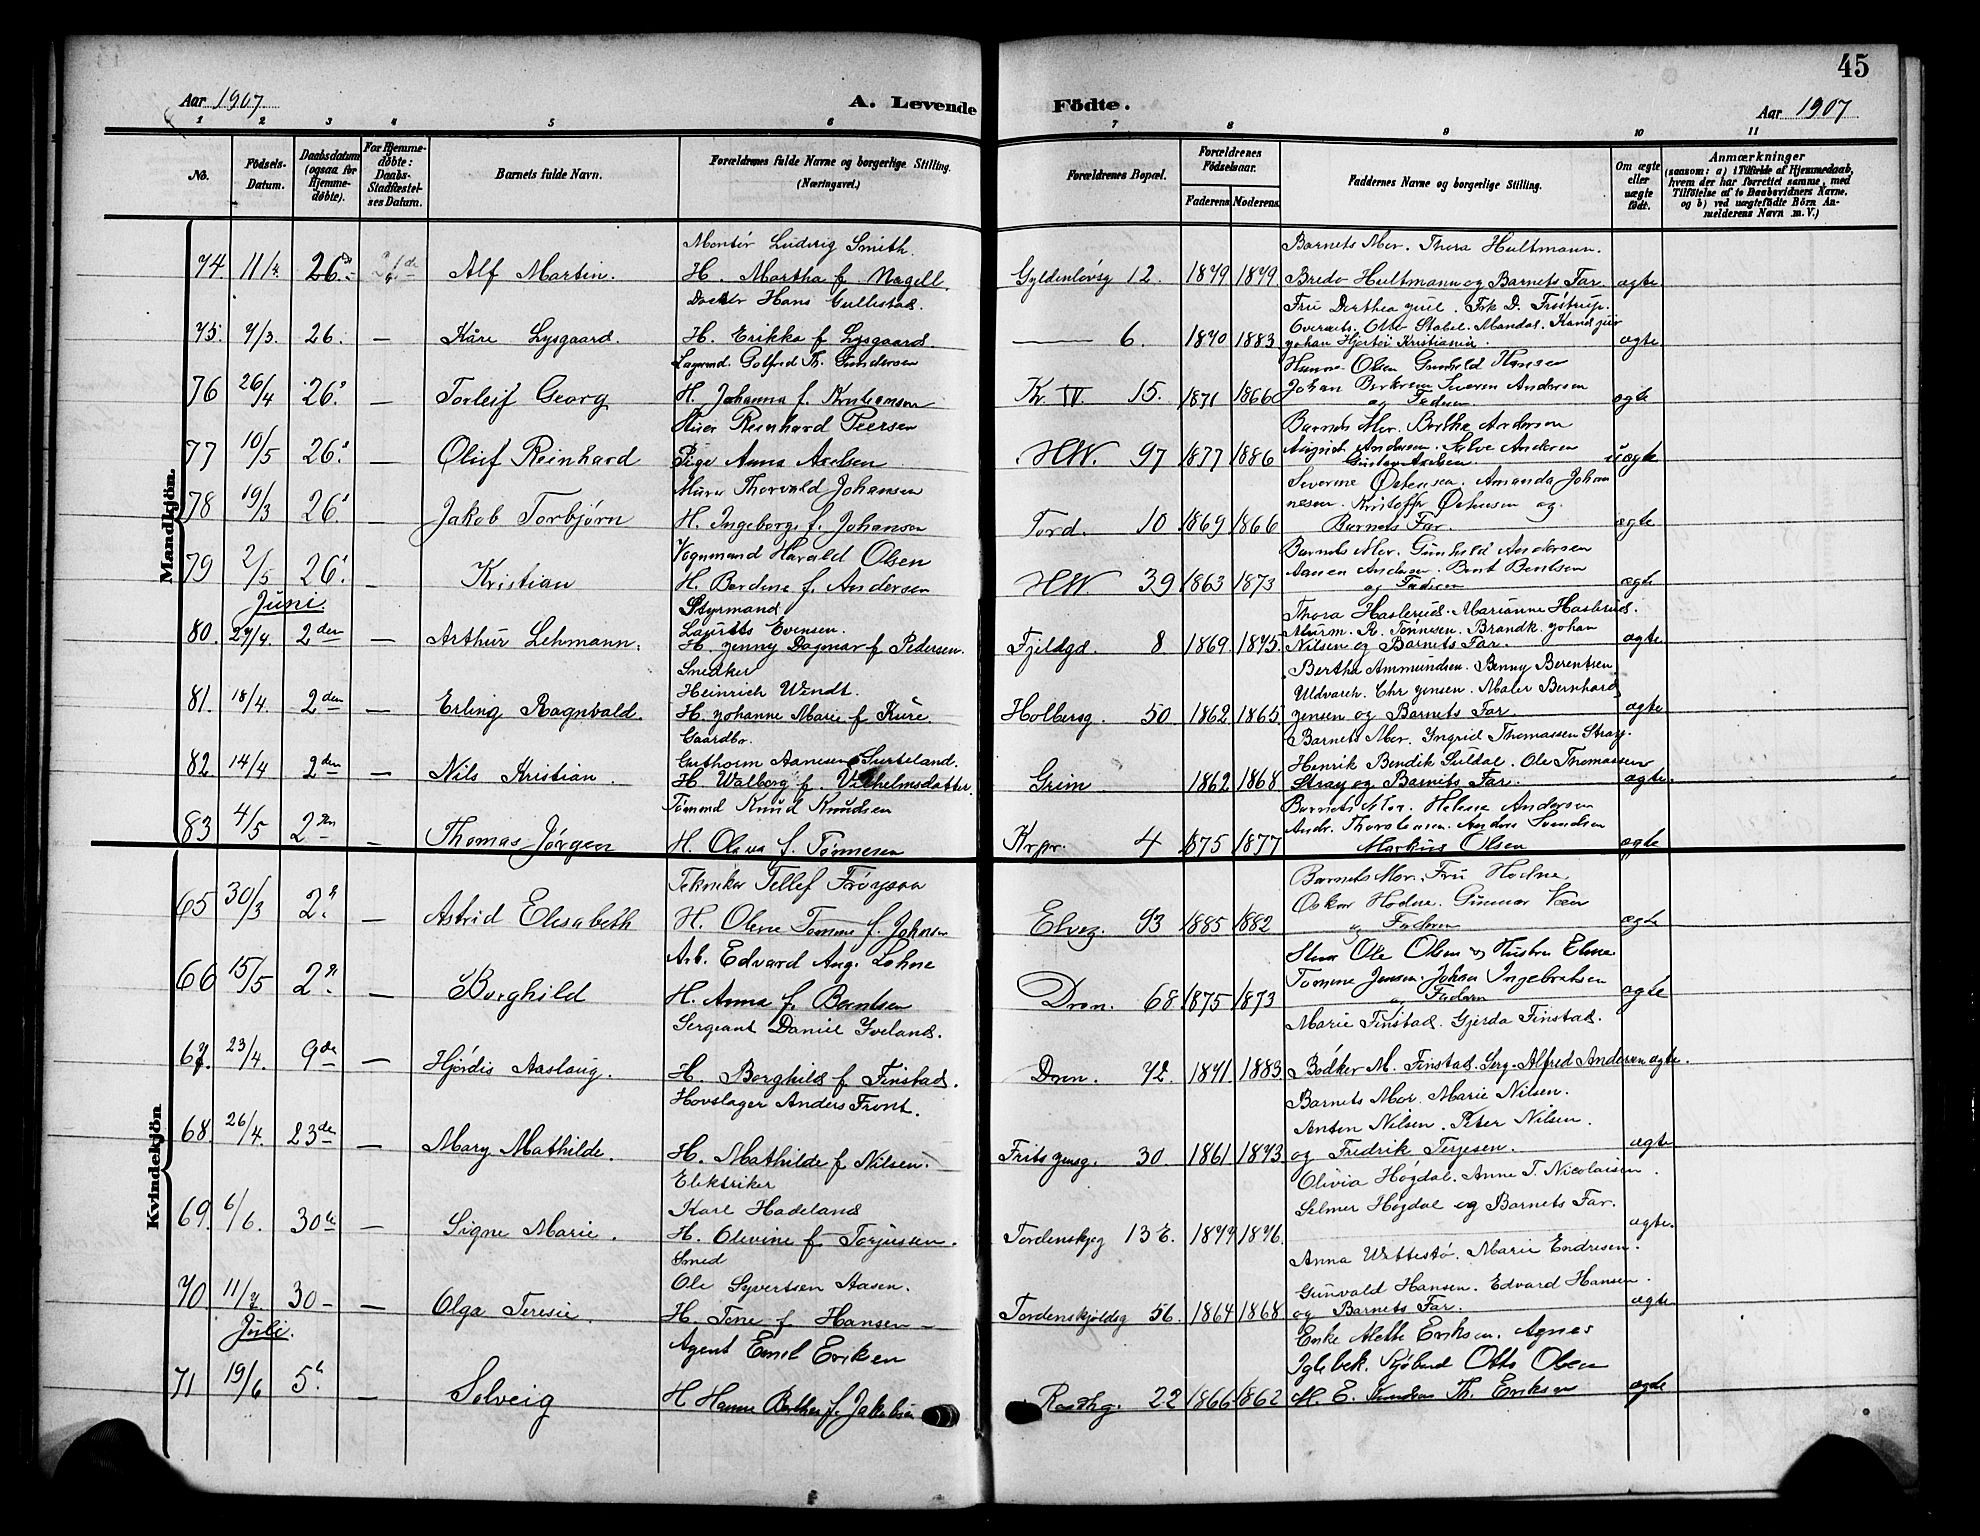 Aar 1907
A. Levende
Födte.
45
Aar 1907
1 2 3 4 5 6 7 8 9 10 11
No.
Födsels-
Datum.
Daabsdatum
(ogsaa for
Hjemme-
døbte).
For Hjemme-
døbte:
Daabs-
Stadfæstel-
ses Datum.
Barnets fulde Navn.
Forældrenes fulde Navne og borgerlige Stilling.
(Næringsvei.)
Forældrenes Bopæl.
Forældrenes
Födselsaar.
Faderens Moderens
Faddernes Navne og borgerlige Stilling.
Om ægte
eller
uægte
født.
Anmærkninger
(saasom: a) i Tilfælde af Hjemmedaab,
hvem der har forrettet samme, med
Tilföielse af to Daabsvidners Navne.
og b) ved uægtefödte Börn An-
melderens Navn m. V.)
Mandkjön.
Montør Ludvig Smith. Barnets Mor. Thora Hultmann.
74 26 Alf Martin. H. Martha f. Nagell Gyldenløvsg 12. 1879 1879 Bredo Hultmann og Barnets Far. ægte
Hans Gullestad. Fru Dorthea Juul. Frk D. Frøstrup.
75 7/3. 26. — Kåre Lysgaard. H. Erikka f Lysgaard — 6. 1870 1883 Otto Stabel. Mandal. ægte
Johan Hjortøi Kristiania.
Gotfred Th. Gundersen Hanna Olsen Gunhild Hansen
76 26/4 26. — Torleif Georg H. Johanna f. Kristiansen Kr. IV. 15. 1871 1866 Johan Severin Andersen ægte
og Faderen
Reinhard Peersen Barnets Mor. Berthe Andersen
77 10/5 26. — Oluf Reinhard Pige Anna Axelsen H.W. 97 1877 1886 Andersen. Salve Andersen uægte
Gustav Axelsen
Murer Thorvald Johansen Severine Østensen. Amanda Johan
78 19/3 26. — Jakob Torbjørn H. Ingeborg f. Johansen Tord. 10 1869 1866 nesen. Kristoffer Østensen og ægte
Barnets Far.
Vognmand Harald Olsen Barnets Mor. Gunhild Andersen
79 2/5 26. — Kristian H. Berdine f. Andersen H.W. 39 1863 1873 Aanen Andersen. Bent Bentsen ægte
og Faderen
Juni.
Styrmand Thora Haslerud. Marianne Haslerud.
80. 27/4. 2den — Arthur Lehmann. Laurits Evensen. Fjeldgd. 8 1869 1875. R. Tønnesen. Brandk. Johan ægte
H. Jenny Dagmar f Pedersen. Nilsen og Barnets Far.
Snedker Bertha Ammundsen. Benny Berentsen
81. 18/4. 2den — Erling Ragnvald. Heinrich Windt. Holbersg. 50 1862 1865 Uldvareh. Chr Jensen. Maler Bernhard ægte
H. Johanne Marie f Kure Jensen og Barnets Far
Gaardbr. Barnets Mor. Ingrid Thomassen Stray.
82. 14/4 2den — Nils Kristian. Guthorm Aanesen Surteland. Grim 1862 1868 Henrik Bendik Suldal. Ole Thomassen ægte.
H. Walborg f. Vilhelmsdatter. Stray og Barnets Far.
Tømmd Knud Knudsen Barnets Mor. Helene Andersen
83 4/5 2den — Thomas Jørgen H. Olava f. Tønnesen Krpr. 4 1875 1877 Andr. Thorstensen. Anders Svendsen ægte
Markus Olsen
Kvindekjön.
Tekniker Tellef Frøysaa Barnets Mor. Fru Hodne.
65 30/3 2. — Astrid Elisabeth H. Olene Tomme f. Johnsen Elveg. 93 1885 1882 Oskar Hodne. Gunnar ægte
og Faderen
Arb. Edvard Aug. Lohne Ole Olsen og Hustru Eline
66 15/5 2. — Borghild H. Anna f. Berntsen Dron. 68 1875 1873 Tomine Jensen. Johan Ingebretsen ægte
og Faderen
Sergeant Daniel Iveland. Marie Finstad. Gjerda Finstad.
67. 23/4. 9de — Hjördis Aaslaug. H. Borghild f Finstad. Dron. 72. 1871 1883 Bödker M. Finstad. Serg. Alfred Andersen ægte.
Hovslager Anders Front. Barnets Mor. Marie Nilsen.
Anton Nilsen. Peter Nilsen.
68. 26/4. 23de — Mary Mathilde. H. Mathilde f Nilsen. Frits Jensg. 30. 1861 1873 og Fredrik Terjesen. ægte
Elektriker Olivia Høgdal. Anne T. Nicolaisen.
69. 6/6. 30te — Signe Marie. Karl Hadeland Selmer Høgdal og Barnets Far.
H. Olivine f Torjussen. Tordenskjg 13 E. 1877 1876. ægte.
Smed Anna Wattestø. Marie Endresen.
70 30 — Olga Teresie. Ole Syvertsen Aasen. Gunvald Hansen. Edvard Hansen
H. Tone f Hansen Tordenskjoldsg 56. 1864 1868 og Barnets Far. ægte
Juli.
Agent Emil Eriksen Enke Alette Eriksen. Agnes
71 19/6 5. — Solveig Iglebek. Otto Olsen
H Hanne Berthea f. Jakobsen Raadhg. 22 1866 1862 M. E. Knudsen Th. Eriksen ægte